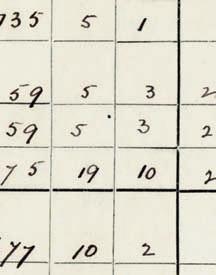 735 5 1
59 5 3 2
59 5 3 2
75 19 10 2
77 10 2